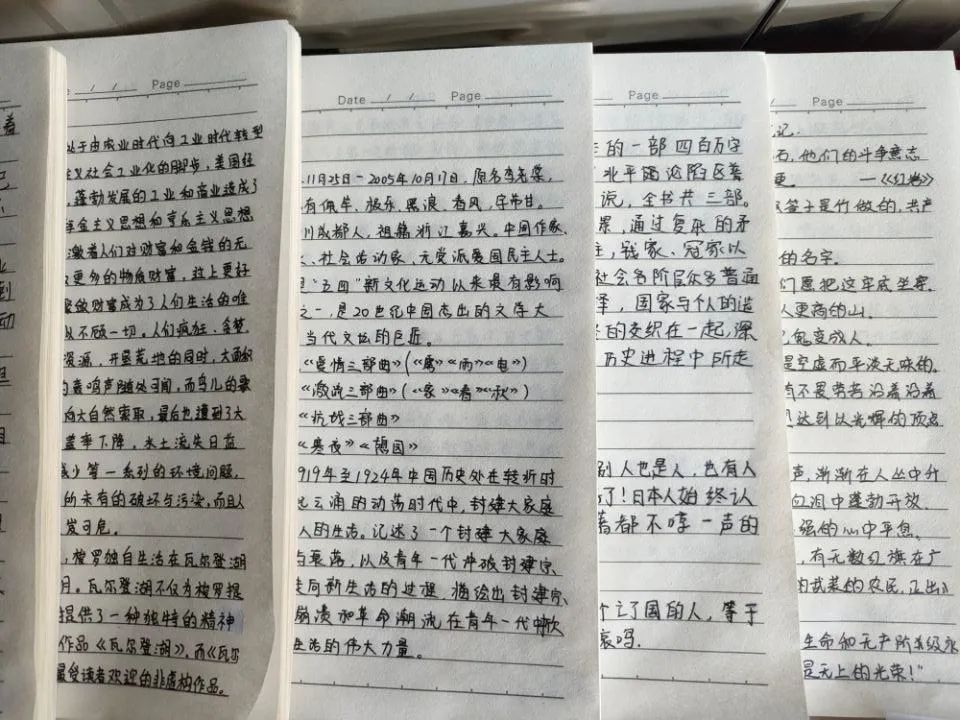 着
到
动
Page
处于由农业时代向工业时代转型
主义社会工业化的脚步，美国经
，蓬勃发展的工业和商业造成了
拜金主义思想和享乐主义思想
激着人们对财富和金钱的无
更多的物质财富，过上更好
聚敛财富成为了人们生活的唯
以不顾一切。人们疯狂、贪婪
资源，开垦荒地的同时，大面积
轰鸣声随处可闻，而鸟儿的歌
向大自然索取，最后也遭到了大
盖率下降，水土流失日益
减少等一系列的环境问题，
所未有的破坏与污染，而且人
岌可危。
，梭罗独自生活在瓦尔登湖
月。瓦尔登湖不仅为梭罗提
提供了一种独特的精神
作品《瓦尔登湖》，而《瓦尔
最受读者欢迎的非虚构作品。
Date / / Page
.11月25日-2005年10月17日，原名李尧棠，
有佩竿、极乐、黑浪、春风，字芾甘。
川成都人，祖籍浙江嘉兴。中国作家、
、社会活动家、无党派爱国民主人士。
是"五四"新文化运动以来最有影响
之一，是20世纪中国杰出的文学大
当代文坛的巨匠。
《爱情三部曲》(《雾》《雨》《电》)
《激流三部曲》(《家》《春》《秋》)
《抗战三部曲》
《寒夜》《憩园》
919年至1924年中国历史处在转折时
起云涌的动荡时代中，封建大家庭
人的生活。记述了一个封建大家庭
与衰落，以及青年一代冲破封建宗
走向新生活的过程，描绘出封建宗
崩溃和革命潮流在青年一代中掀
生活的伟大力量。
Page
的一部四百万字
北平沦陷区普
说，全书共三部。
景，通过复杂的矛
主，钱家、冠家以
社会各阶层众多普通
择，国家与个人的
的交织在一起，深
历史进程中所走
别人也是人，也有人
了！日本人始终认
着都不哼一声的
个亡了国的人，等于
哀吗.
Page
记.
石，他们的斗争意志
更. —《红岩》
签子是竹做的，共产
的名字.
们愿把这牢底坐穿.
人更高的山.
鬼变成人.
是空虚而平淡无味的.
有不畏劳苦沿着沿着
达到光辉的顶点
声，渐渐在人丛中升
血泪中蓬勃开放.
强的心中平息.
，有无数红旗在广
武装的农民，正出
生命和无产阶级永
是无上的光荣！"